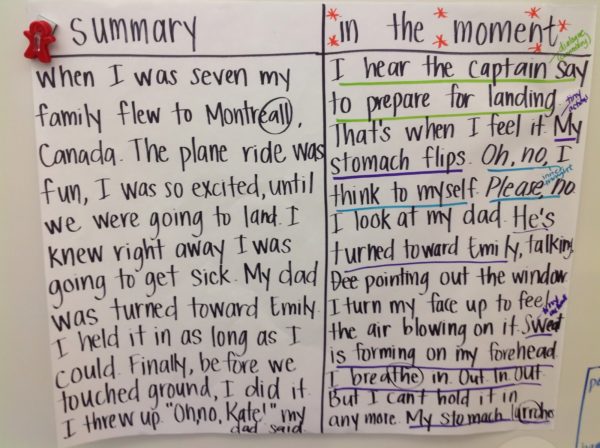 Summary
When I was seven my
family flew to Montreall
Canada. The plane ride was
fun, I was so excited, until
we were going to land. I
knew right away I was
going to get sick. My dad
was turned toward Emily.
I held it in as long as I
could. Finally, before we
touched ground, I did it.
I threw up. "Oh, no, Kate!" my
dad said.
in the moment
dialogue
I hear the captain say
to prepare for landing.
tiny
action
That's when I feel it. My
stomach flips. Oh, no, I
think to myself. Please, no.
I look at my dad. He's
turned toward Emily, talking,
Dee pointing out the window.
I turn my face up to feel
the air blowing on it. Sweat
is forming on my forehead.
I breathe in. Out. In. Out.
But I can't hold it in
any more. My stomach